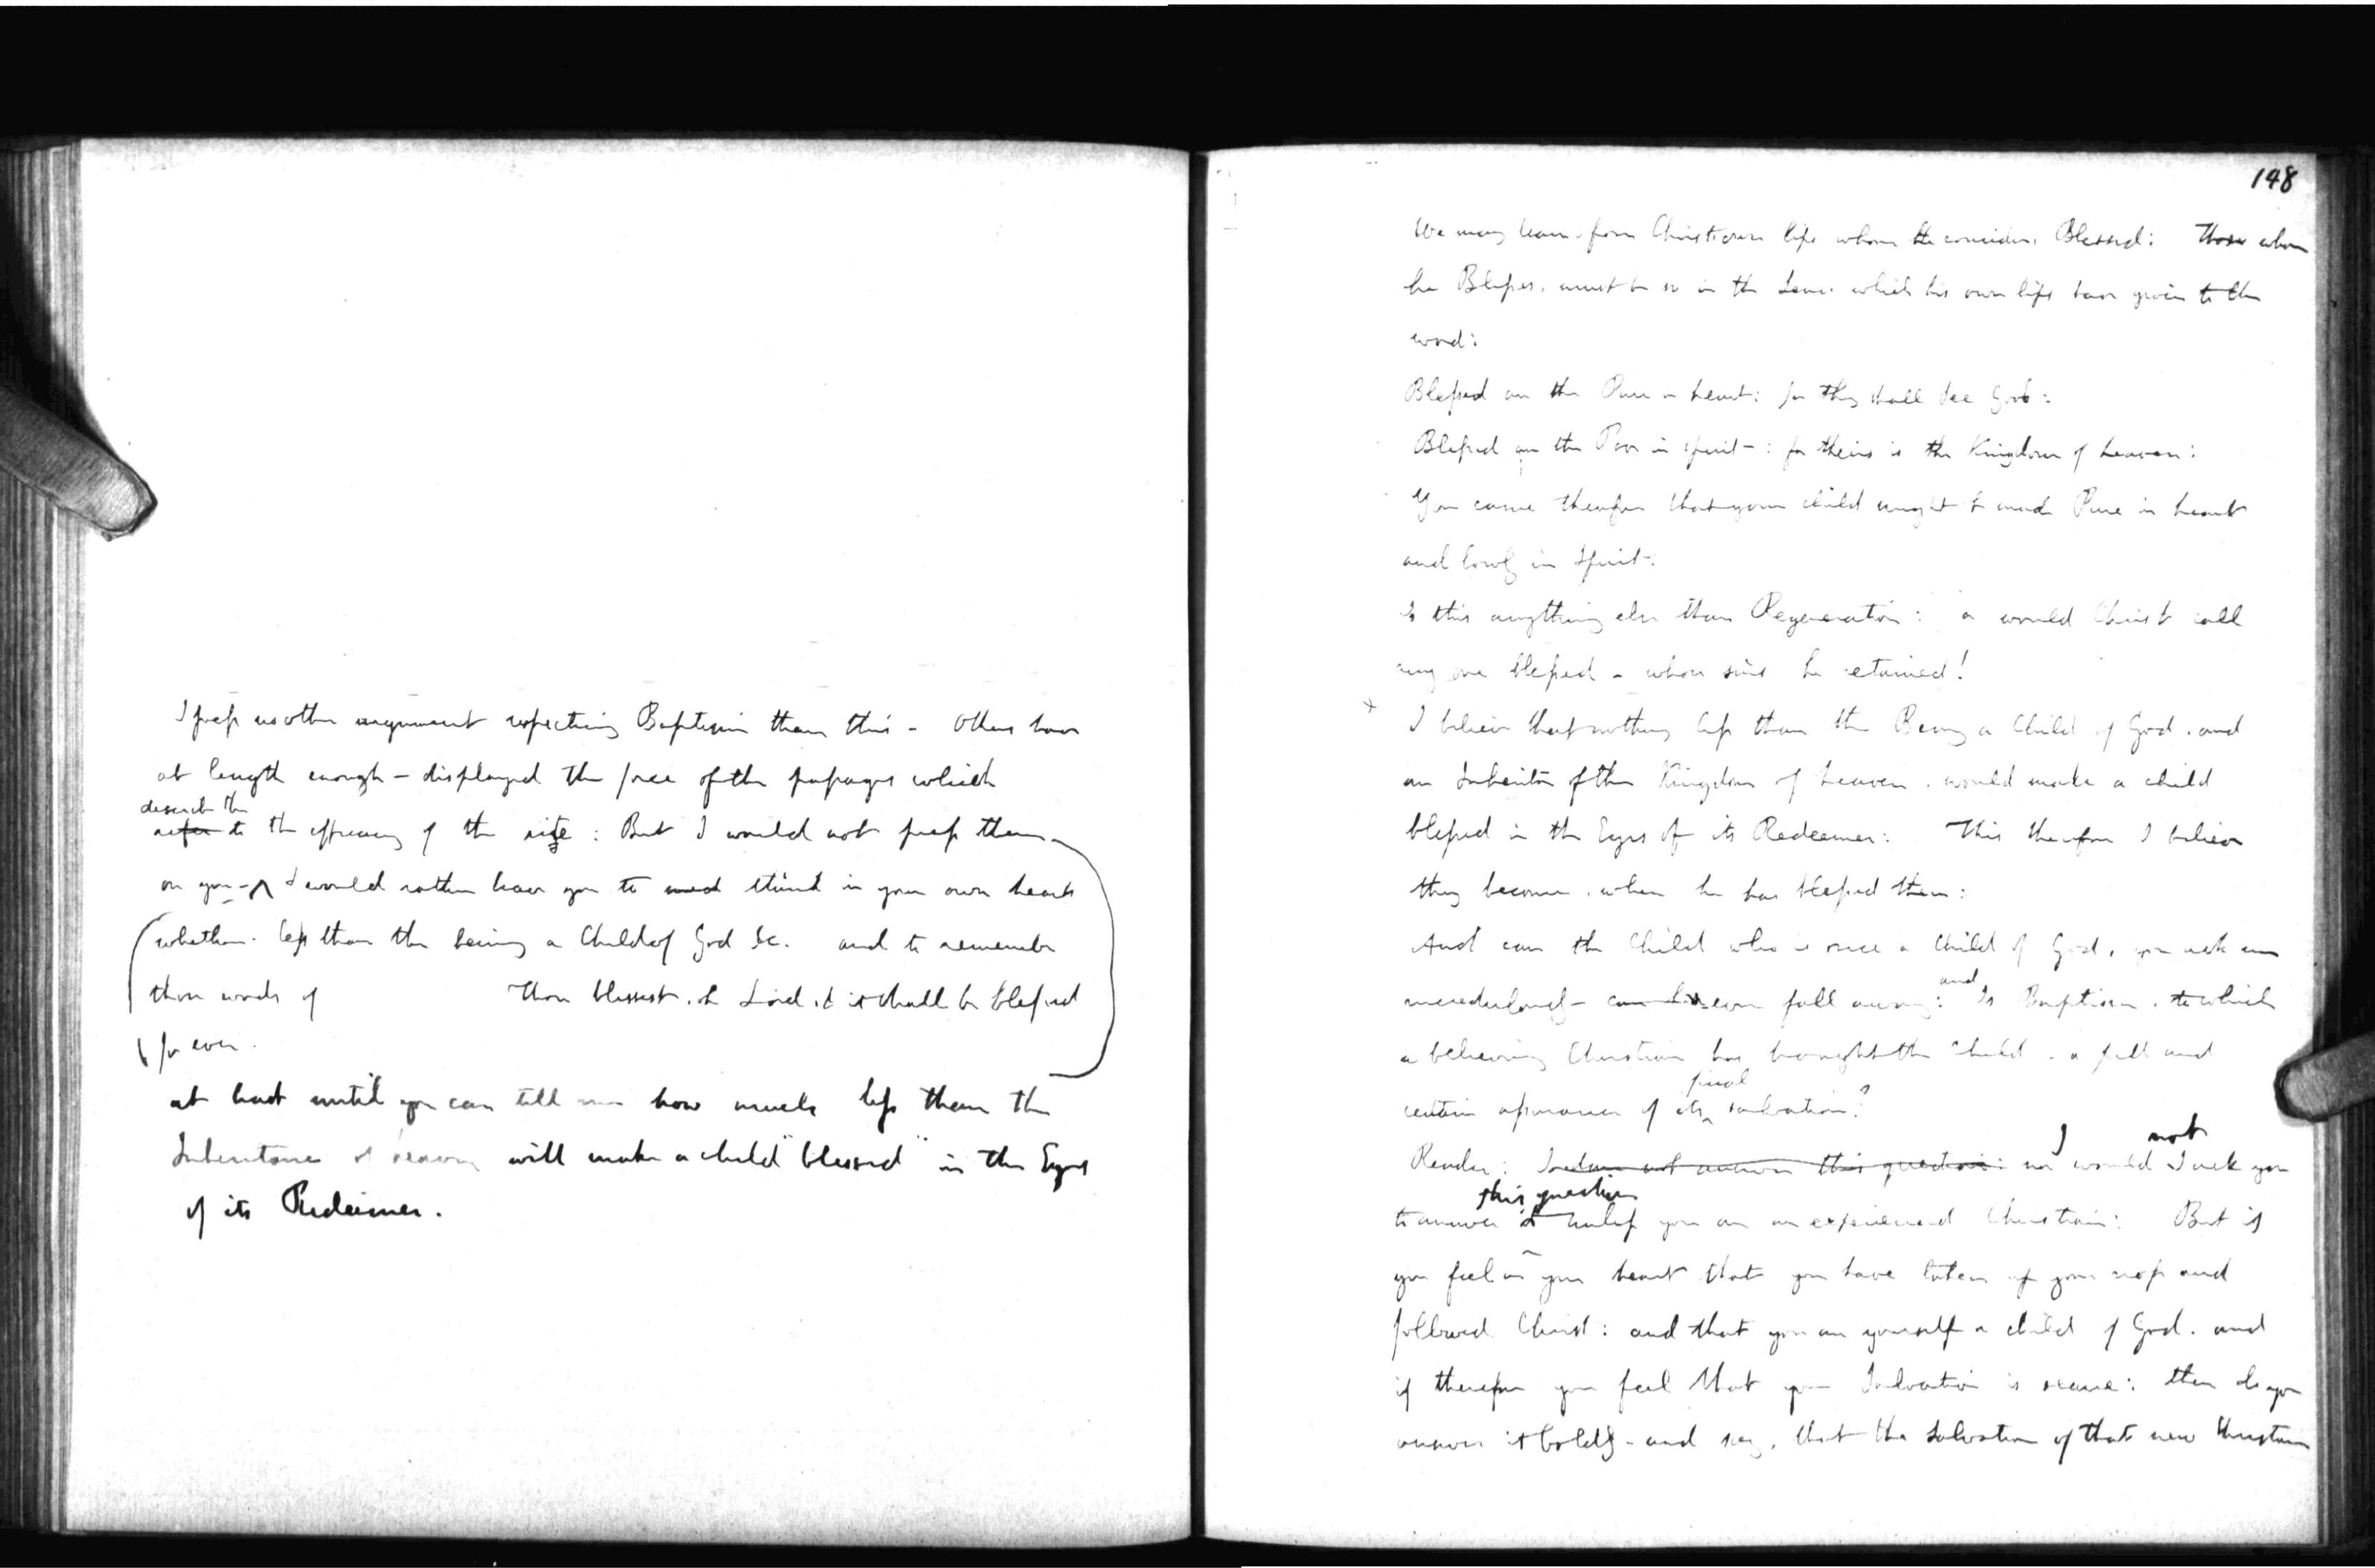 I press no other argument respecting Baptism than this - Others have
at length enough - displayed the force of the passages which
describe the
refer to the efficacy of the rite : But I would not press them
on you - I would rather leave you to think in your own hearts
whether. less than the being a Child of God &c. and to remember
those words of Thou blessest. oh Lord, & it shall be blessed
for ever.
at least until you can tell me how much less than the
Inheritance of heaven will make a child "blessed" in the Eyes
of its Redeemer.
148
We may learn from Christs own life whom He considers Blessed: Those whom
he Blesses. must be so in the sense which his own life has given to the
word:
Blessed are the Pure in heart: for they shall see God:
Blessed are the Poor in spirit - : for theirs is the Kingdom of heaven:
You came therefore that your child might be made Pure in heart
and lowly in Spirit:
Is this anything else than Regeneration: or would Christ call
any one blessed - whose sins he retained!
x I believe that nothing less than the Being a Child of God. and
an Inheritor of the Kingdom of heaven. would make a child
blessed in the Eyes of its Redeemer: This therefore I believe
they become. when he has blessed them:
And can the Child who is once a Child of God, you ask me
incredulously - can ever fall away: and Is Baptism. to which
a believing Christian has brought the child - a full and
final
certain assurance of its salvation?
Reader: I dare not answer this question: nor I would not I ask you
this question
to answer it unless you are an experienced Christian: But if
you feel in your heart that you have taken up your cross and
followed Christ: and that you are yourself a child of God. and
if therefore you feel that your Salvation is secure: then do you
answer it boldly - and say, that the salvation of that new Christian